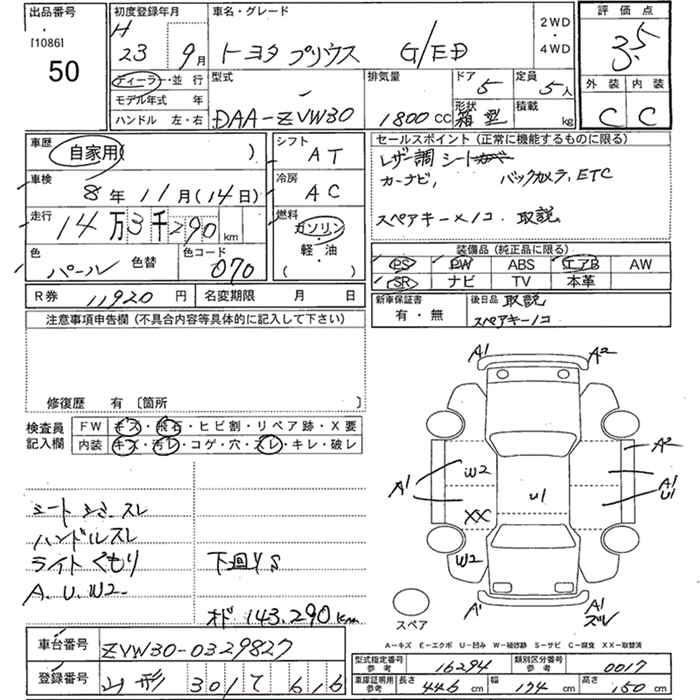 出品番号
[1086]
50
初度登録年月
H
23 9月
車名・グレード
トヨタ プリウス G/ED
2WD
・
4WD
評価点
3.5
外装 内装
C C
ディーラー・並行
モデル年式 年
ハンドル 左・右
型式
DAA-ZVW30
排気量
1800cc
ドア 5
形状 箱型
定員 5人
積載 kg
車歴
自家用( )
車検
8年 11月(14日)
走行
14万3千290km
色
パール 色替
色コード
070
シフト
AT
冷房
AC
燃料
ガソリン
軽・油
( )
セールスポイント(正常に機能するものに限る)
レザー調シート
カーナビ, バックカメラ, ETC
スペアキー×1コ. 取説.
装備品(純正品に限る)
PS PW ABS エアB AW
SR ナビ TV 本革
R券 11920円 名変期限 月 日
新車保証書
有・無
後日品 取説
スペアキー1コ
注意事項申告欄(不具合内容等具体的に記入して下さい)
修復歴 有〔箇所 〕
検査員
記入欄
FW キズ・飛石・ヒビ割・リペア跡・X要
内装 キズ・汚レ・コゲ・穴・スレ・キレ・破レ
シート シミ. スレ
ハンドルスレ
ライトくもり
A. U. W2.
下廻りS
オド 143.290km
A1 A2
A2
W2
A1
U1
A1
U1
XX
W2
A1
A1
スレ
スペア
A-キズ E-エクボ U-凹み W-補修跡 S-サビ C-腐食 XX-取替済
車台番号 ZVW30-0329827
登録番号 山形 301 て 616
型式指定番号
参考
16294
類別区分番号
参考
0017
車庫証明用
参考
長さ 446cm 幅 174cm 高さ 150cm